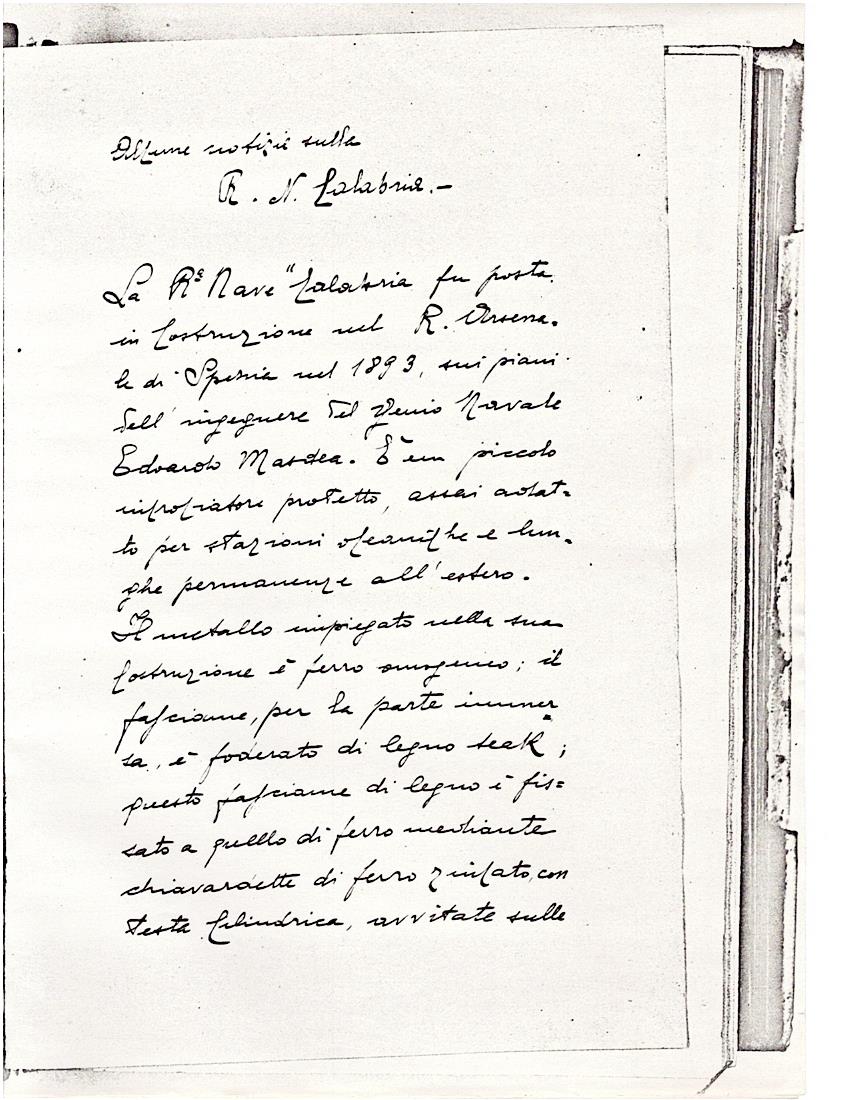 Alcune notizie sulla
R. N. Calabria.–
La Rª Nave "Calabria fu posta
in Costruzione nel R. Arsena-
le di Spezia nel 1893, sui piani
dell'ingegnere del Genio Navale
Edoardo Masdea. È un piccolo
incrociatore protetto, assai adat=
to per stazioni oceaniche e lun-
ghe permanenze all'estero.
Il metallo impiegato nella sua
Costruzione è ferro omogeneo; il
fasciame, per la parte immer
sa, è foderato di legno teak;
questo fasciame di legno è fis=
sato a quello di ferro mediante
chiavardette di ferro zincato, con
testa Cilindrica, avvitate sulle